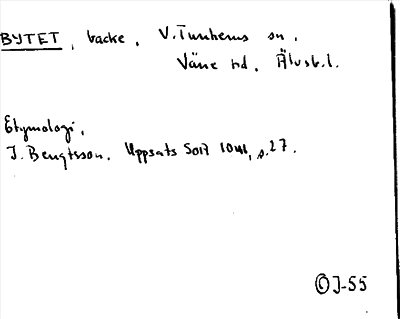 BYTET, backe, V. Tunhems sn,
Väne hd, Älvsb. l.
Etymologi,
I. Bengtsson. Uppsats SOIA 1041, s. 27.
©J-55